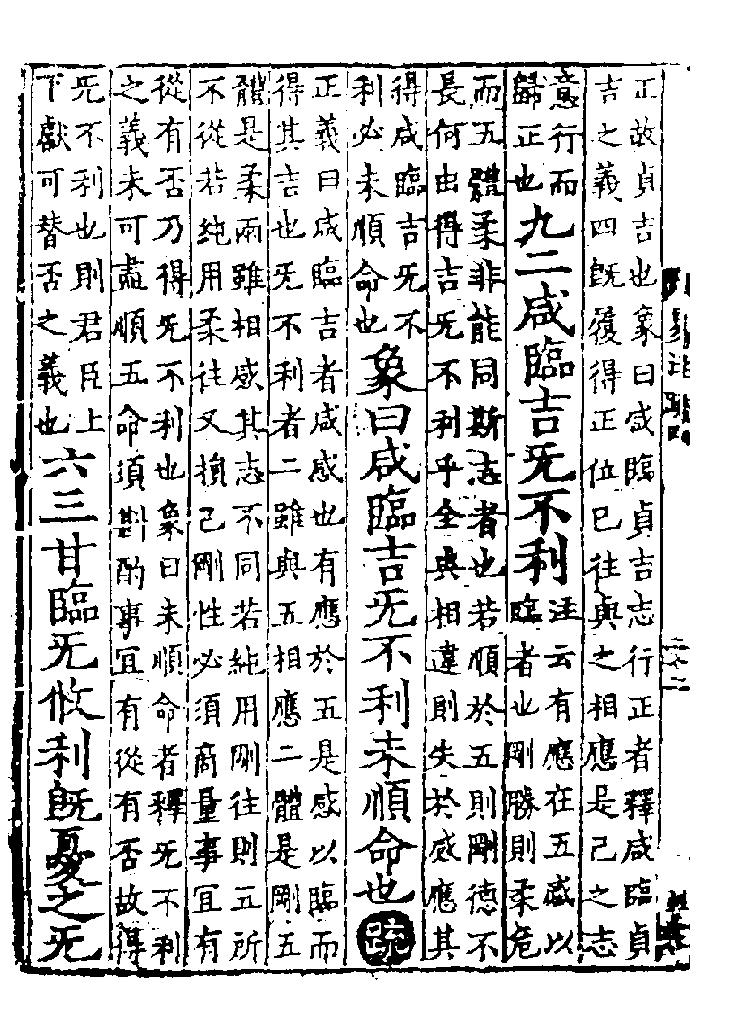 正故貞吉也象曰咸臨貞吉志行正者釋咸臨貞
吉之義四既履得正位已往與之相應是己之志
意行而
歸正也
九二咸臨吉无不利
注云有應在五感以
臨者也剛勝則柔危
而五體柔非能同斯志者也若順於五則剛德不
長何由得吉无不利乎全與相違則失於感應其
得咸臨吉无不
利必未順命也
象曰咸臨吉无不利未順命也
疏
正義曰咸臨吉者咸感也有應於五是感以臨而
得其吉也无不利者二雖與五相應二體是剛五
體是柔兩雖相感其志不同若純用剛往則五所
不從若純用柔往又損己剛性必須商量事宜有
從有否乃得无不利也象曰未順命者釋无不利
之義未可盡順五命須斟酌事宜有從有否故得
无不利也則君臣上
下獻可替否之義也
六三甘臨无攸利既憂之无